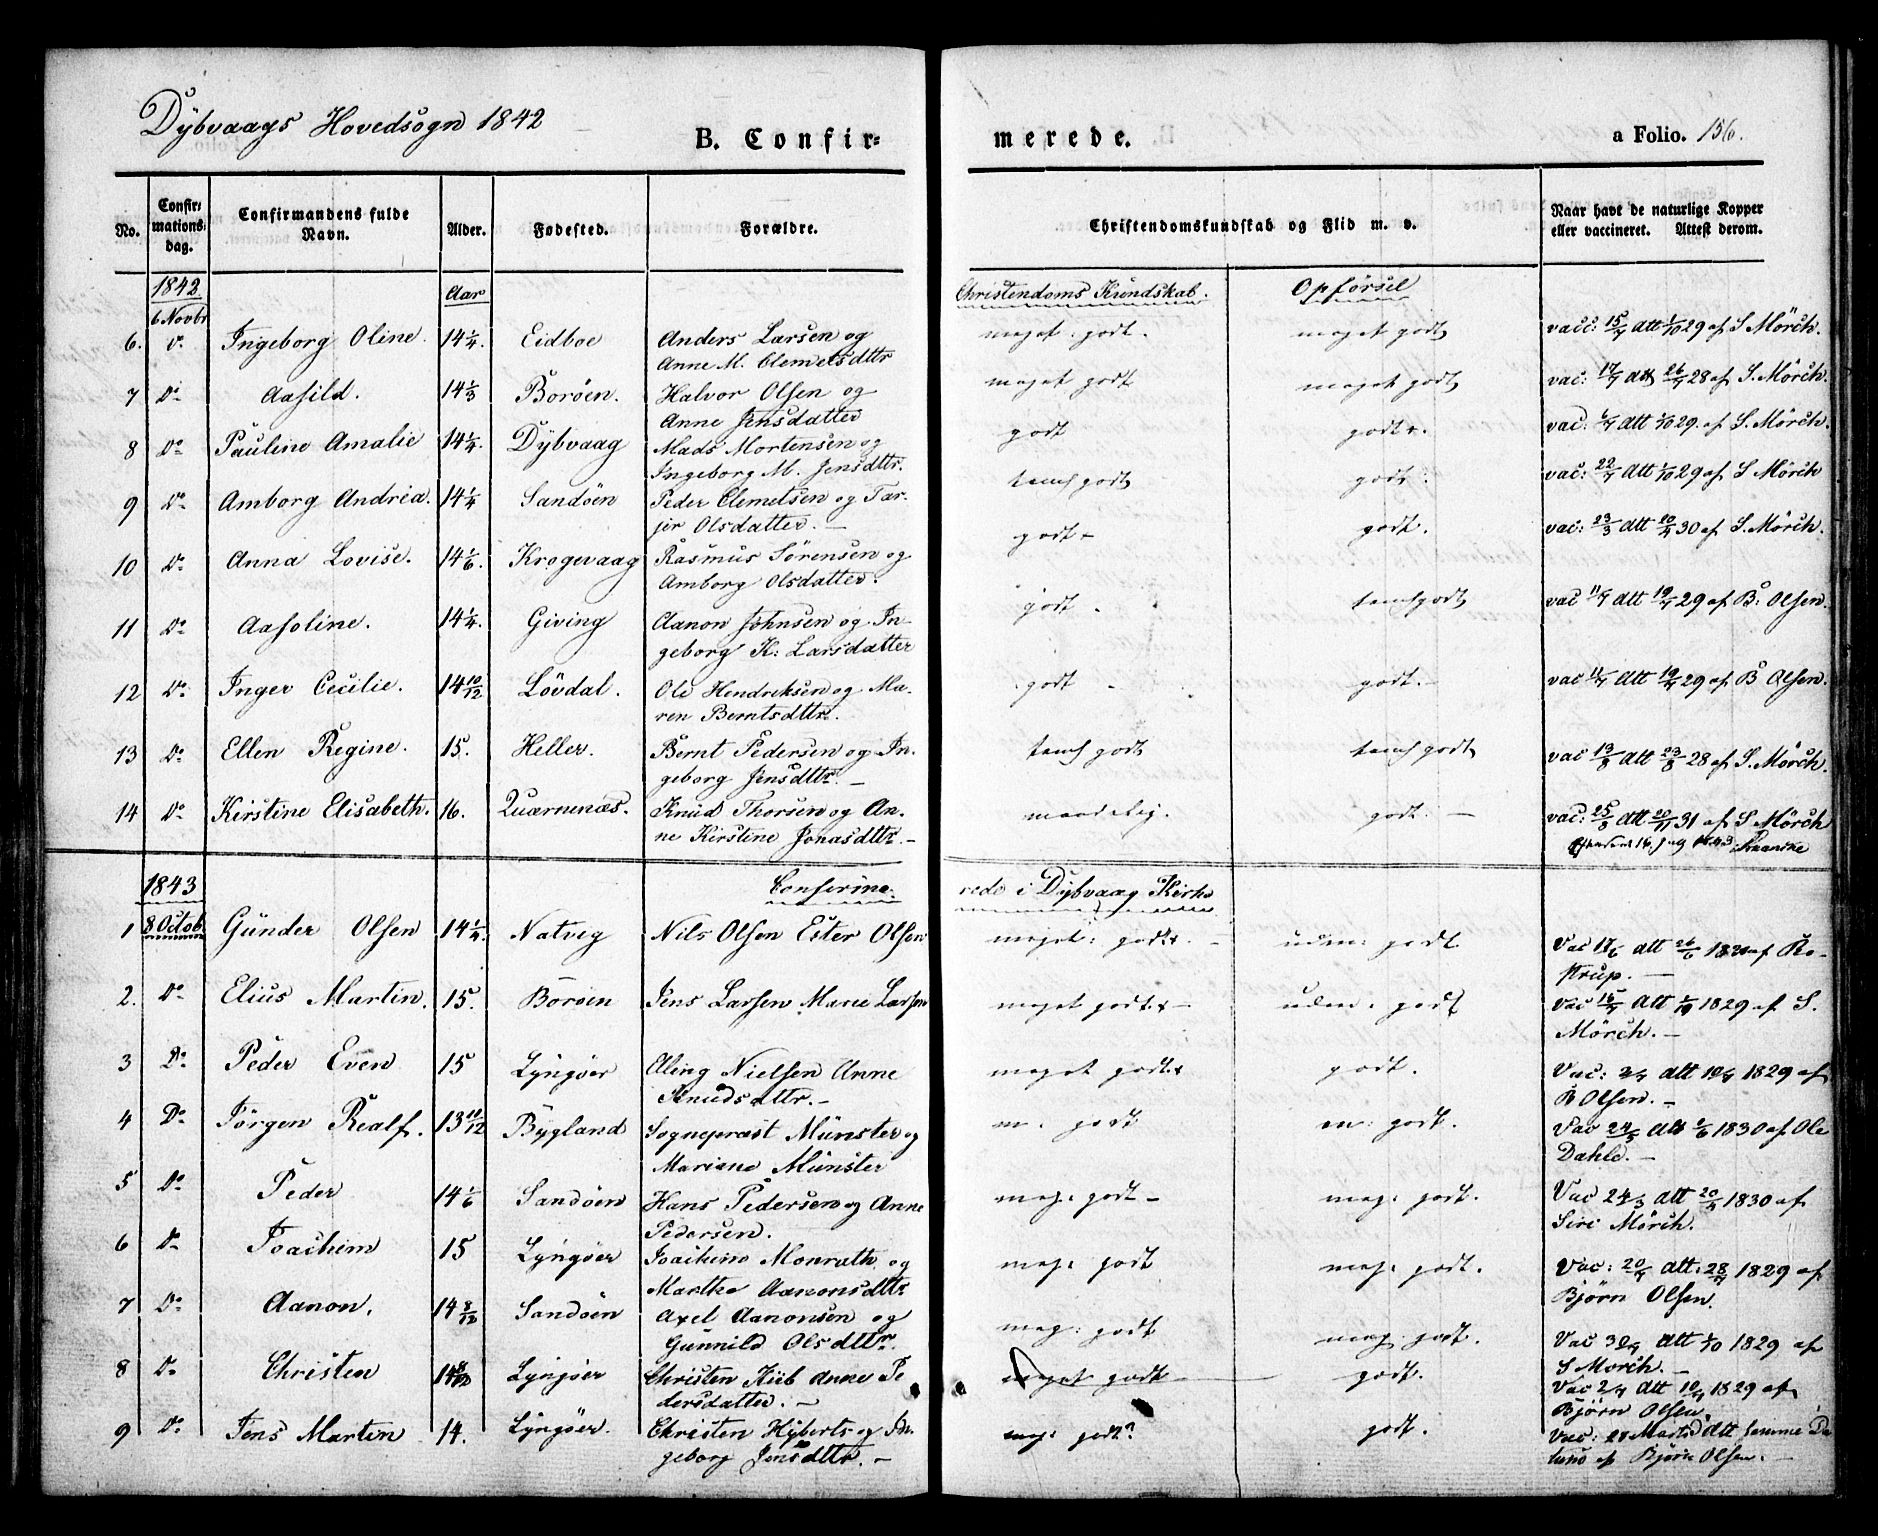 Dybvaags Hovedsogn 1842
B. Confir=
merede.
a Folio. 156.
No.
Confir=
mations=
dag.
Confirmandens fulde
Navn.
Alder.
Fødested.
Forældre.
Christendomskundskab og Flid m. v.
Naar havt de naturlige Kopper
eller vaccineret. Attest derom.
1842
Aar
Christendoms Kundskab.
Opførsel
6 Novbr
6. Do Ingeborg Oline. 14 1/4. Eidboe Anders Larsen og
Anne M. Clemetsdttr
meget godt. meget godt vacc: 15/7 Att 1/10 29 af S Mörch.
7 Do Aasild. 14 1/3 Borøen. Halvor Olsen og
Anne Jensdatter
meget godt meget godt vac: 17/7 Att 26/7 28 af S. Mörch.
8 Do Pauline Amalie 14 1/4. Dybvaag Mads Mortensen og
Ingeborg M. Jensdttr.
godt godt. vac: 6/7 Att 1/10 29. af S. Mörch.
9 Do Amborg Andria. 14 1/4 Sandøen Peder Clemetsen og Tar-
jer Olsdatter. —
temß godt godt. vac: 22/7 Att 1/10 29 af S Mörch
10 Do Anna Lovise. 14 1/6. Krogevaag Rasmus Sørensen og
Amborg Olsdatter.
godt - godt. vac: 23/3 Att 20/4 30 af S. Mörch.
11 Do Aasoline. 14 1/4. Giving Aanon Johnsen og In-
geborg K: Larsdatter
godt. temß godt vac 11/7 Att 19/7 29 af B: Olsen.
12 Do Inger Cecilie. 14 10/12 Løvdal. Ole Hendriksen og Ma-
ren Berntsdttr.
godt godt. - vac 11/7 Att 19/7 29 af B Olsen.
13 Do Ellen Regine. 15. Heller. Bernt Pedersen og In-
geborg Jensdttr. —
temß godt temß godt vac 13/8 Att 23/8 28 af S. Mörch.
14 Do Kirstine Elisabeth. 16. Quærnenæs. Knud Thorsen og An-
ne Kirstine Jonasdttr. -
maadelig. godt. — vac: 25/8 Att 20/11 31 af S Mörch
1843
Confirme-
rede i Dybvaag Kirke
1 8 Octob. Gunder Olsen 14 1/4. Natvig Nils Olsen Ester Olsen
meget: godt. - udm: godt Vac 17/6 Att 26/6 af Ro-
strup. —
2. Do Elius Martin. 15. Borøen Jens Larsen Marie Larsen
meget godt. - udm: godt Vac 15/7 Att 1/10 1829 af S.
Mörch. -
3 Do Peder Even 15 Lyngøer Eling Nielsen Anne
Knudsdttr. -
meget godt. godt. Vac: Att 1829 af
B Olsen. -
4 Do Jørgen Realf. 13 11/12 Bygland Sognepræst Münster og
Mariane Münster
m. godt m: godt. Vac 24/5 Att 1/6 1830 af Ole
Dahle. -
5 Do Peder 14 1/6 Sandøen Hans Pedersen og Anne
Pedersen.
meg: godt - meg: godt. Vac 24/3 Att 20/4 1830 af
Siri Mörch.
6 Do Joachim 15 Lyngøer Joachim Monrath og
Marthe Aanonsdttr
meg: godt meg: godt. Vac: 20/7 Att: 28/7 1829 af
Bjørn Olsen.
7 Do Aanon. 14 8/12 Sandøen Axel Aanonsen og
Gunnild Olsdttr.
meg: godt meg: godt. Vac Att 1/10 1829 af
S Morch. -
8 Do Christen 14 Lyngøer Christen Kiib Anne Pe
dersdatter. -
meget godt godt. Vac 2/7 Att 10/7 1829 af
Bjørn Olsen.
9 Do Jens Martin 14. Lyngøer. Christen Hyberts og In-
geborg Jensdttr. -
meg: godt? godt. Vac: Att samme Da
tums af Bjørn Olsen. -